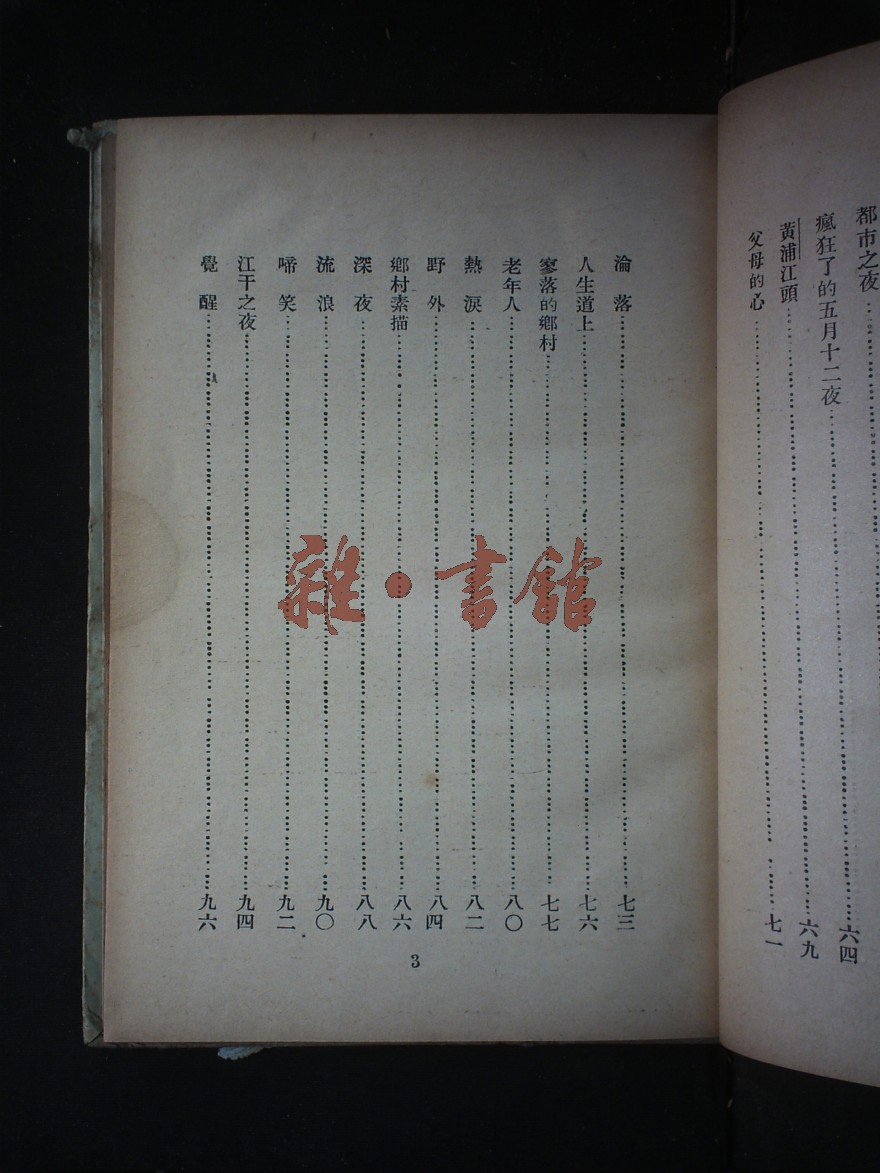 都市之夜……
瘋狂了的五月十二夜……六四
黃浦江頭……六九
父母的心……七一
淪落……七三
人生道上……七六
寥落的鄉村……七七
老年人……八〇
熱淚……八二
野外……八四
鄉村素描……八六
深夜……八八
流浪……九〇
啼笑……九二
江干之夜……九四
覺醒……九六
3
雜·書館